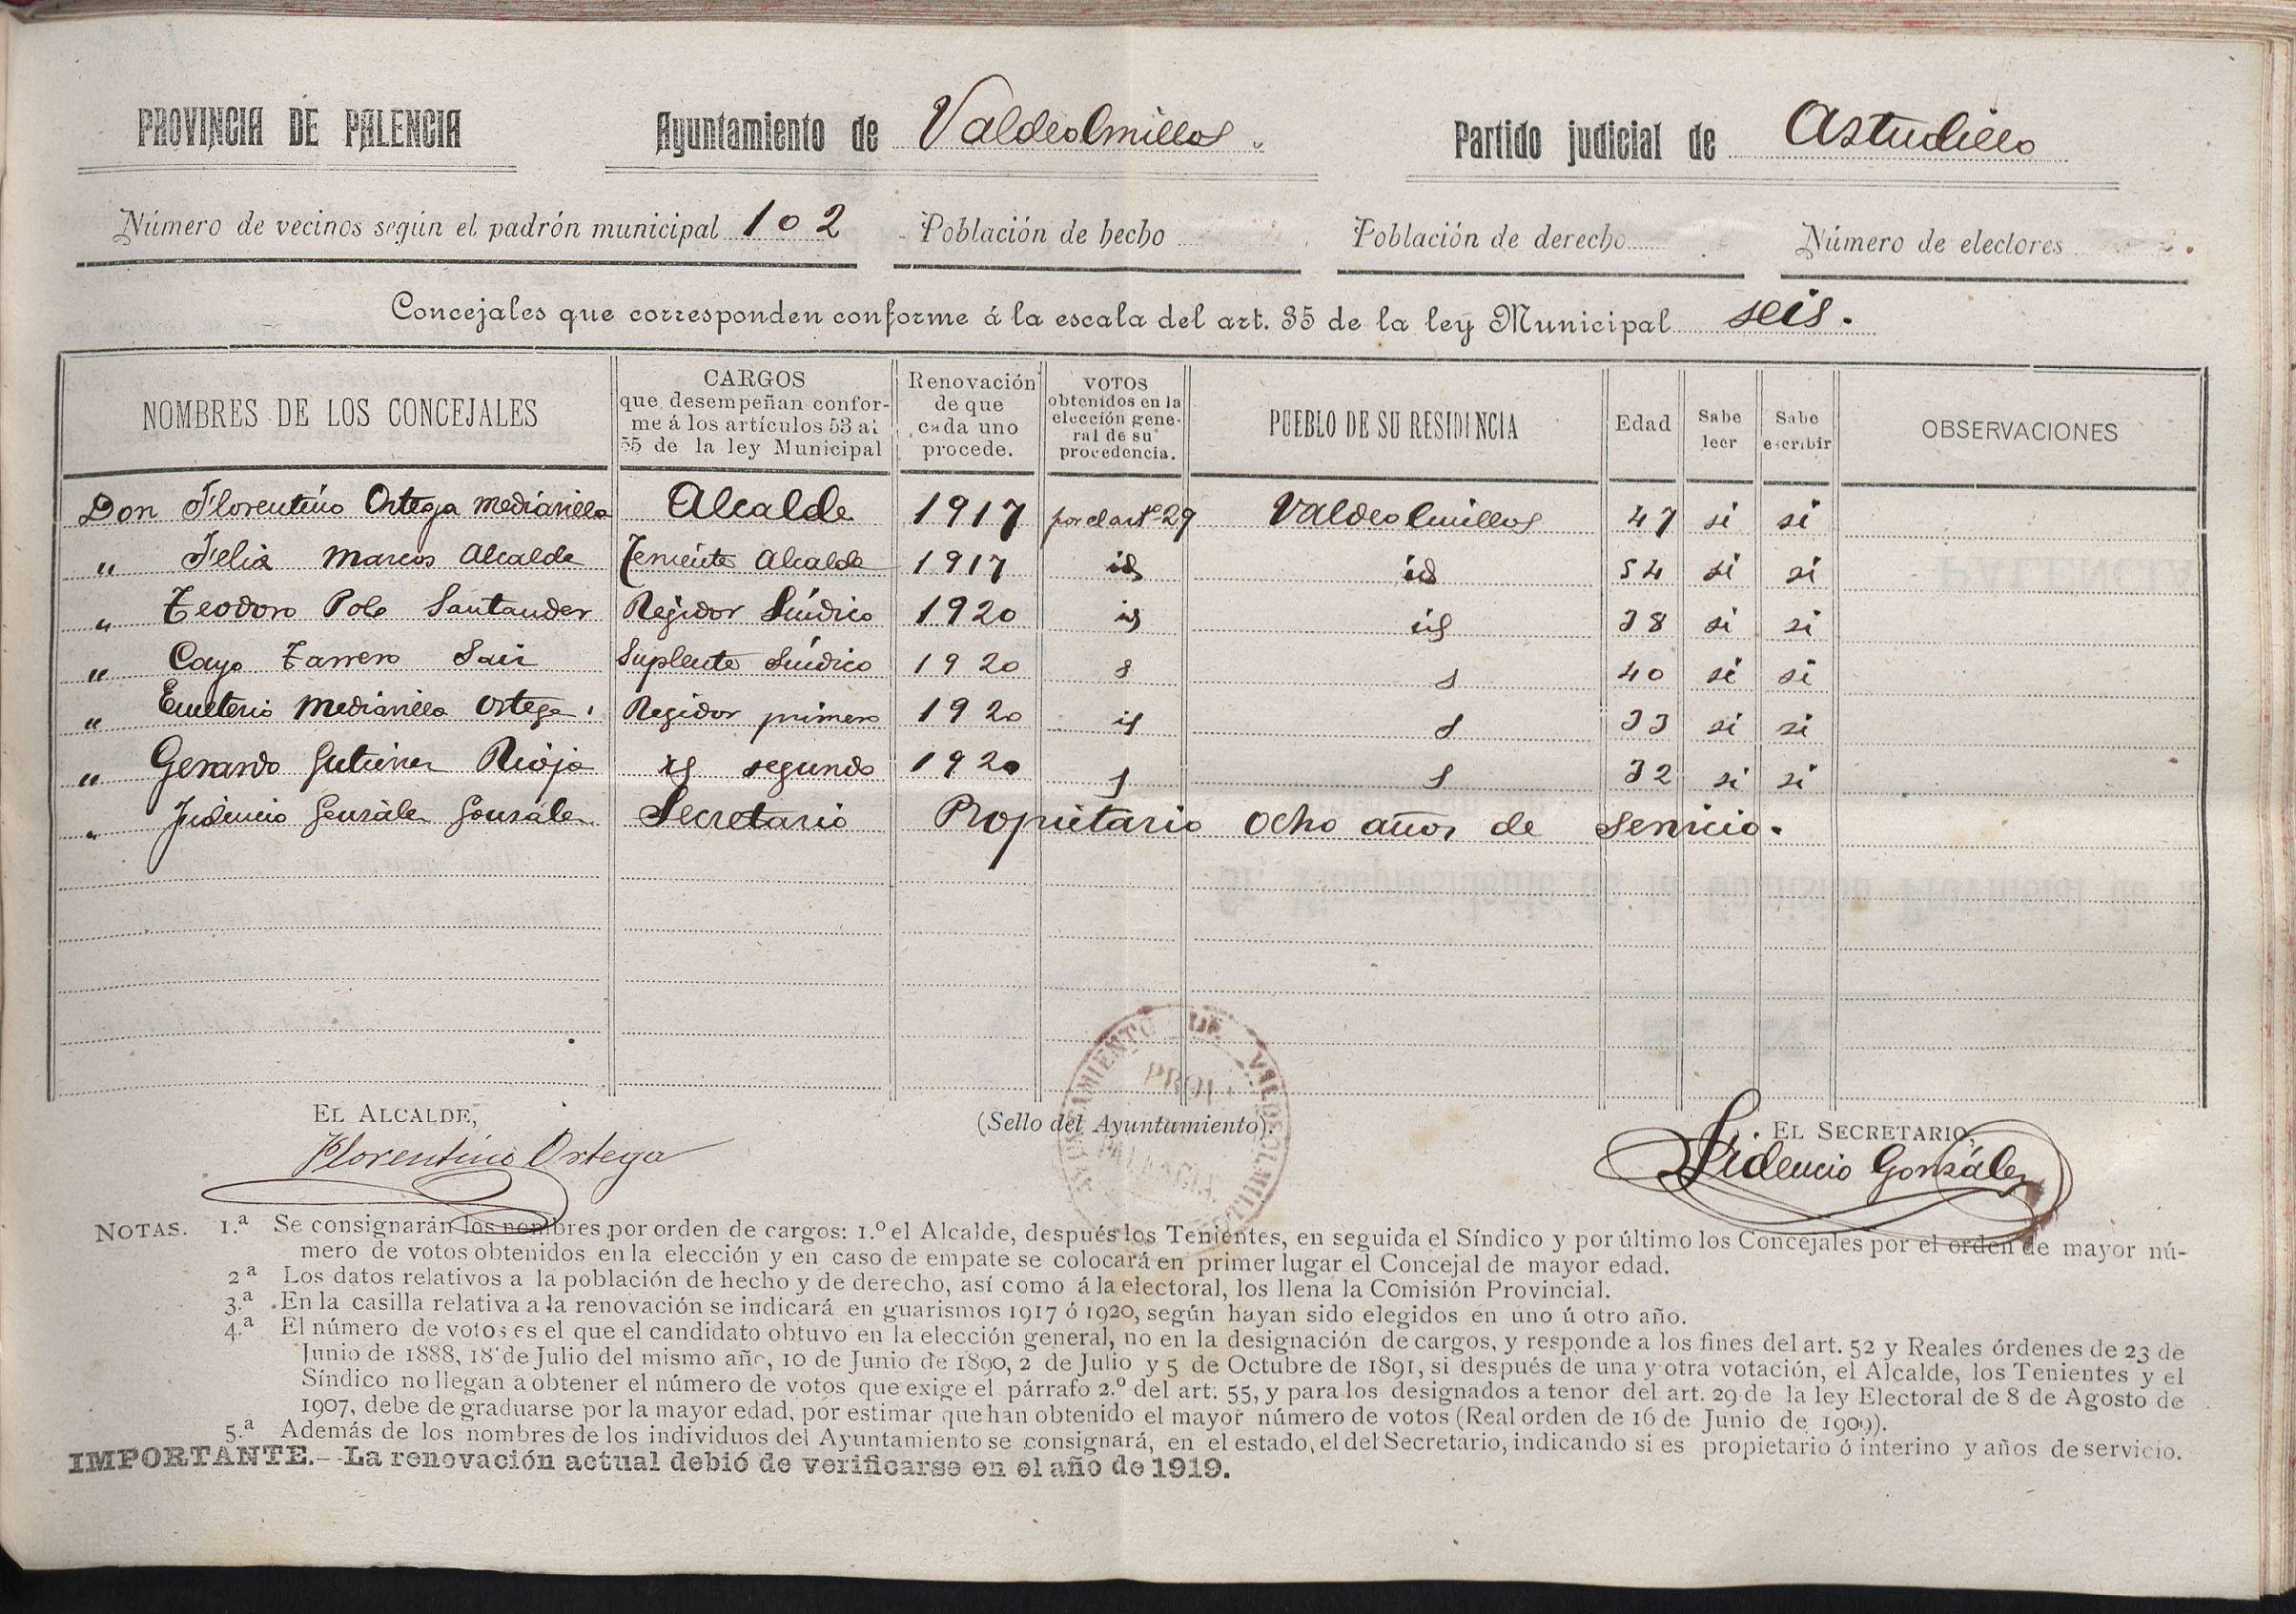 PROVINCIA DE PALENCIA Ayuntamiento de Valdeolmillos. Partido judicial de Astudillo
Número de vecinos según el padrón municipal 102 Población de hecho Población de derecho Número de electores
Concejales que corresponden conforme á la escala del art. 35 de la ley Municipal seis.
NOMBRES DE LOS CONCEJALES
CARGOS
que desempeñan confor-
me á los artículos 53 al
55 de la ley Municipal
Renovación
de que
cada uno
procede.
VOTOS
obtenidos en la
elección gene-
ral de su
procedencia.
PUEBLO DE SU RESIDENCIA
Edad
Sabe
leer
Sabe
escribir
OBSERVACIONES
Don Florentino Ortega Mediavilla Alcalde 1917 por el artº 29 Valdeolmillos 47 si si
" Felix Marcos Alcalde Teniente Alcalde 1917 id id 54 si si
" Teodoro Polo Santander Regidor Síndico 1920 id id 38 si si
" Cayo Tarrero Saiz Suplente Síndico 1920 40 si si
" Emeterio Mediavilla Ortega Regidor primero 1920 id 33 si si
" Gerardo Gutierrez Rioja id segundo 1920 32 si si
" Fidencio González González Secretario Propietario ocho años de servicio.
EL ALCALDE,
Florentino Ortega
(Sello del Ayuntamiento).
AYUNTAMIENTO DE VALDEOLMILLOS
PALENCIA
EL SECRETARIO,
Fidencio González
NOTAS. 1.ª Se consignarán los nombres por orden de cargos: 1.º el Alcalde, después los Tenientes, en seguida el Síndico y por último los Concejales por el orden de mayor nú-
mero de votos obtenidos en la elección y en caso de empate se colocará en primer lugar el Concejal de mayor edad.
2ª Los datos relativos a la población de hecho y de derecho, así como á la electoral, los llena la Comisión Provincial.
3.ª En la casilla relativa a la renovación se indicará en guarismos 1917 ó 1920, según hayan sido elegidos en uno ú otro año.
4.ª El número de votos es el que el candidato obtuvo en la elección general, no en la designación de cargos, y responde a los fines del art. 52 y Reales órdenes de 23 de
Junio de 1888, 18 de Julio del mismo año, 10 de Junio de 1890, 2 de Julio y 5 de Octubre de 1891, si después de una y otra votación, el Alcalde, los Tenientes y el
Síndico no llegan a obtener el número de votos que exige el párrafo 2.º del art. 55, y para los designados a tenor del art. 29 de la ley Electoral de 8 de Agosto de
1907, debe de graduarse por la mayor edad, por estimar que han obtenido el mayor número de votos (Real orden de 16 de Junio de 1909).
5.ª Además de los nombres de los individuos del Ayuntamiento se consignará, en el estado, el del Secretario, indicando si es propietario ó interino y años de servicio.
IMPORTANTE.—La renovación actual debió de verificarse en el año de 1919.